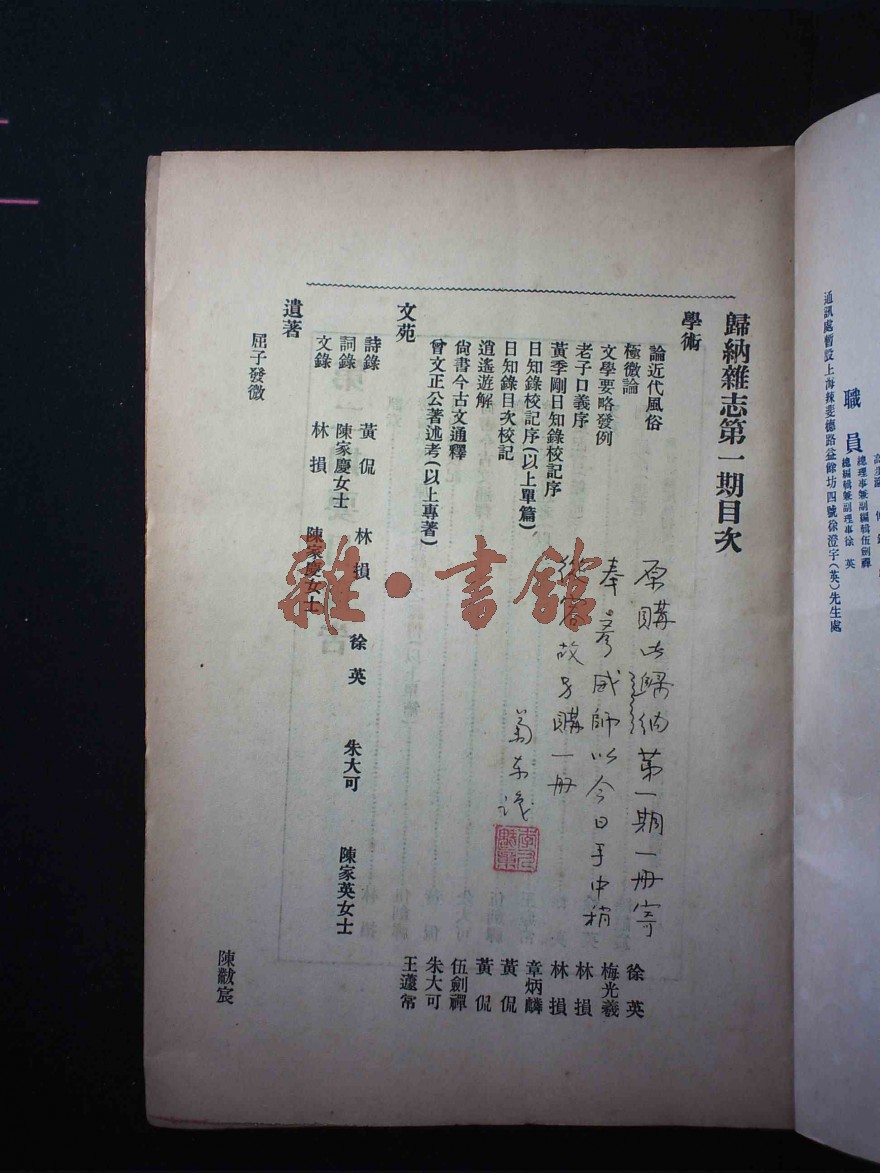 職員
總理事兼副編輯伍劍禪
總編輯兼副理事徐英
通訊處暫設上海辣斐德路益餘坊四號徐澄宇(英)先生處
歸納雜志第一期目次
學術
論近代風俗 徐英
極微論 梅光羲
文學要略發例 林損
老子口義序 林損
黃季剛日知錄校記序 章炳麟
日知錄校記序(以上單篇) 黃侃
日知錄目次校記 黃侃
逍遙遊解 伍劍禪
尙書今古文通釋 朱大可
曾文正公著述考(以上專著) 王蘧常
文苑
詩錄 黃侃 林損 徐英 朱大可 陳家英女士
詞錄 陳家慶女士
文錄 林損 陳家慶女士
遺著
屈子發微 陳黻宸
原購此歸納第一期一冊寄
奉彥威師以今日手中稍
從容故另購一冊
雜·書館